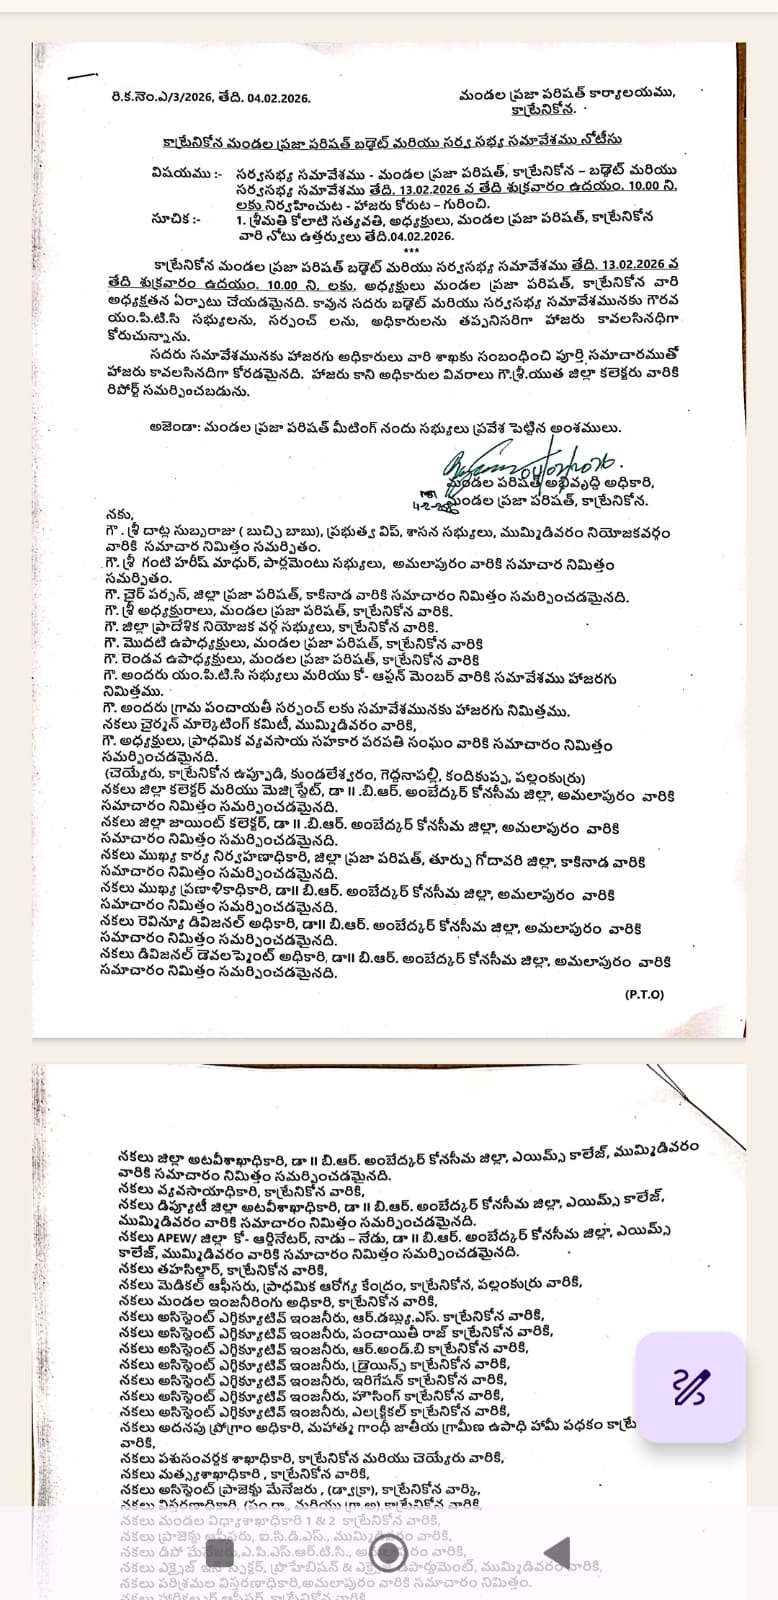 రి.క.నెం.ఎ/3/2026, తేది. 04.02.2026.
మండల ప్రజా పరిషత్ కార్యాలయము,
కాట్రేనికోన.
కాట్రేనికోన మండల ప్రజా పరిషత్ బడ్జెట్ మరియు సర్వ సభ్య సమావేశము నోటీసు
విషయము :- సర్వసభ్య సమావేశము - మండల ప్రజా పరిషత్, కాట్రేనికోన – బడ్జెట్ మరియు
సర్వసభ్య సమావేశము తేది. 13.02.2026 వ తేది శుక్రవారం ఉదయం. 10.00 ని.
లకు నిర్వహించుట - హాజరు కోరుట - గురించి.
సూచిక :- 1. శ్రీమతి కోలాటి సత్యవతి, అధ్యక్షులు, మండల ప్రజా పరిషత్, కాట్రేనికోన
వారి నోటు ఉత్తర్వులు తేది.04.02.2026.
***
కాట్రేనికోన మండల ప్రజా పరిషత్ బడ్జెట్ మరియు సర్వసభ్య సమావేశము తేది. 13.02.2026 వ
తేది శుక్రవారం ఉదయం. 10.00 ని. లకు. అధ్యక్షులు మండల ప్రజా పరిషత్, కాట్రేనికోన వారి
అధ్యక్షతన ఏర్పాటు చేయడమైనది. కావున సదరు బడ్జెట్ మరియు సర్వసభ్య సమావేశమునకు గౌరవ
యం.పి.టి.సి సభ్యులను, సర్పంచ్ లను, అధికారులను తప్పనిసరిగా హాజరు కావలసినధిగా
కోరుచున్నాను.
సదరు సమావేశమునకు హాజరగు అధికారులు వారి శాఖకు సంబంధించి పూర్తి సమాచారముతో
హాజరు కావలసినదిగా కోరడమైనది. హాజరు కాని అధికారుల వివరాలు గౌ.శ్రీ.యుత జిల్లా కలెక్టరు వారికి
రిపోర్ట్ సమర్పించబడును.
అజెండా: మండల ప్రజా పరిషత్ మీటింగ్ నందు సభ్యులు ప్రవేశ పెట్టిన అంశములు.
మండల పరిషత్ అభివృద్ధి అధికారి,
మండల ప్రజా పరిషత్, కాట్రేనికోన.
నకు,
గౌ . శ్రీ దాట్ల సుబ్బరాజు ( బుచ్చి బాబు), ప్రభుత్వ విప్, శాసన సభ్యులు, ముమ్మిడివరం నియోజకవర్గం
వారికి సమాచార నిమిత్తం సమర్పితం.
గౌ. శ్రీ గంటి హరీష్ మాధుర్, పార్లమెంటు సభ్యులు, అమలాపురం వారికి సమాచార నిమిత్తం
సమర్పితం.
గౌ. చైర్ పర్సన్, జిల్లా ప్రజా పరిషత్, కాకినాడ వారికి సమాచారం నిమిత్తం సమర్పించడమైనది.
గౌ. శ్రీ అధ్యక్షురాలు, మండల ప్రజా పరిషత్, కాట్రేనికోన వారికి.
గౌ. జిల్లా ప్రాదేశిక నియోజక వర్గ సభ్యులు, కాట్రేనికోన వారికి.
గౌ. మొదటి ఉపాధ్యక్షులు, మండల ప్రజా పరిషత్, కాట్రేనికోన వారికి
గౌ. రెండవ ఉపాధ్యక్షులు, మండల ప్రజా పరిషత్, కాట్రేనికోన వారికి
గౌ. అందరు యం.పి.టి.సి సభ్యులు మరియు కో- ఆప్షన్ మెంబర్ వారికి సమావేశము హాజరగు
నిమిత్తము.
గౌ. అందరు గ్రామ పంచాయతీ సర్పంచ్ లకు సమావేశమునకు హాజరగు నిమిత్తము.
నకలు చైర్మన్ మార్కెటింగ్ కమిటీ, ముమ్మిడివరం వారికి,
గౌ. అధ్యక్షులు, ప్రాధమిక వ్యవసాయ సహకార పరపతి సంఘం వారికి సమాచారం నిమిత్తం
సమర్పించడమైనది.
(చెయ్యేరు, కాట్రేనికోన ఉప్పూడి, కుండలేశ్వరం, గెద్దనాపల్లి, కందికుప్ప, పల్లంకుర్రు)
నకలు జిల్లా కలెక్టర్ మరియు మెజిస్ట్రేట్, డా ll .బి.ఆర్. అంబేద్కర్ కోనసీమ జిల్లా, అమలాపురం వారికి
సమాచారం నిమిత్తం సమర్పించడమైనది.
నకలు జిల్లా జాయింట్ కలెక్టర్, డా ll .బి.ఆర్. అంబేద్కర్ కోనసీమ జిల్లా, అమలాపురం వారికి
సమాచారం నిమిత్తం సమర్పించడమైనది.
నకలు ముఖ్య కార్య నిర్వహణాధికారి, జిల్లా ప్రజా పరిషత్, తూర్పు గోదావరి జిల్లా, కాకినాడ వారికి
సమాచారం నిమిత్తం సమర్పించడమైనది.
నకలు ముఖ్య ప్రణాళికాధికారి, డాll బి.ఆర్. అంబేద్కర్ కోనసీమ జిల్లా, అమలాపురం వారికి
సమాచారం నిమిత్తం సమర్పించడమైనది.
నకలు రెవిన్యూ డివిజనల్ అధికారి, డాll బి.ఆర్. అంబేద్కర్ కోనసీమ జిల్లా, అమలాపురం వారికి
సమాచారం నిమిత్తం సమర్పించడమైనది.
నకలు డివిజనల్ డెవలప్మెంట్ అధికారి, డాll బి.ఆర్. అంబేద్కర్ కోనసీమ జిల్లా, అమలాపురం వారికి
సమాచారం నిమిత్తం సమర్పించడమైనది.
(P.T.O)
నకలు జిల్లా అటవీశాఖాధికారి, డా ll బి.ఆర్. అంబేద్కర్ కోనసీమ జిల్లా, ఎయిమ్స్ కాలేజ్, ముమ్మిడివరం
వారికి సమాచారం నిమిత్తం సమర్పించడమైనది.
నకలు వ్యవసాయాధికారి, కాట్రేనికోన వారికి,
నకలు డిప్యూటీ జిల్లా అటవీశాఖాధికారి, డా ll బి.ఆర్. అంబేద్కర్ కోనసీమ జిల్లా, ఎయిమ్స్ కాలేజ్,
ముమ్మిడివరం వారికి సమాచారం నిమిత్తం సమర్పించడమైనది.
నకలు APEW/ జిల్లా కో- ఆర్డినేటర్, నాడు – నేడు, డా ll బి.ఆర్. అంబేద్కర్ కోనసీమ జిల్లా, ఎయిమ్స్
కాలేజ్, ముమ్మిడివరం వారికి సమాచారం నిమిత్తం సమర్పించడమైనది.
నకలు తహసిల్దార్, కాట్రేనికోన వారికి,
నకలు మెడికల్ ఆఫీసరు, ప్రాధమిక ఆరోగ్య కేంద్రం, కాట్రేనికోన, పల్లంకుర్రు వారికి,
నకలు మండల ఇంజనీరింగు అధికారి, కాట్రేనికోన వారికి,
నకలు అసిస్టెంట్ ఎగ్జిక్యూటివ్ ఇంజనీరు, ఆర్.డబ్ల్యు.ఎస్. కాట్రేనికోన వారికి,
నకలు అసిస్టెంట్ ఎగ్జిక్యూటివ్ ఇంజనీరు, పంచాయితీ రాజ్ కాట్రేనికోన వారికి,
నకలు అసిస్టెంట్ ఎగ్జిక్యూటివ్ ఇంజనీరు, ఆర్.అండ్.బి కాట్రేనికోన వారికి,
నకలు అసిస్టెంట్ ఎగ్జిక్యూటివ్ ఇంజనీరు, డ్రైయిన్స్ కాట్రేనికోన వారికి,
నకలు అసిస్టెంట్ ఎగ్జిక్యూటివ్ ఇంజనీరు, ఇరిగేషన్ కాట్రేనికోన వారికి,
నకలు అసిస్టెంట్ ఎగ్జిక్యూటివ్ ఇంజనీరు, హౌసింగ్ కాట్రేనికోన వారికి,
నకలు అసిస్టెంట్ ఎగ్జిక్యూటివ్ ఇంజనీరు, ఎలక్ట్రికల్ కాట్రేనికోన వారికి,
నకలు అదనపు ప్రోగ్రాం అధికారి, మహాత్మ గాంధీ జాతీయ గ్రామీణ ఉపాధి హామీ పధకం కాట్రే
వారికి,
నకలు పశుసంవర్ధక శాఖాధికారి, కాట్రేనికోన మరియు చెయ్యేరు వారికి,
నకలు మత్స్యశాఖాధికారి , కాట్రేనికోన వారికి,
నకలు అసిస్టెంట్ ప్రాజెక్టు మేనేజరు , (డ్వాక్రా), కాట్రేనికోన వార్కి,
నకలు విస్తరణాధికారి, (పం.రా., మరియు గ్రా.అ) కాట్రేనికోన వారికి,
నకలు మండల విధ్యాశాఖాధికారి 1 & 2 కాట్రేనికోన వారికి,
నకలు ప్రాజెక్టు ఆఫీసరు, ఐ.సి.డి.ఎస్., ముమ్మిడివరం వారికి,
నకలు డిపో ఎ.పి.ఎస్.ఆర్.టి.సి., వారికి,
నకలు ఎక్సైజ్ ప్రొహిబిషన్ & ముమ్మిడివరం వారికి,
నకలు పరిశ్రమల విస్తరణాధికారి,అమలాపురం వారికి సమాచారం నిమిత్తం.